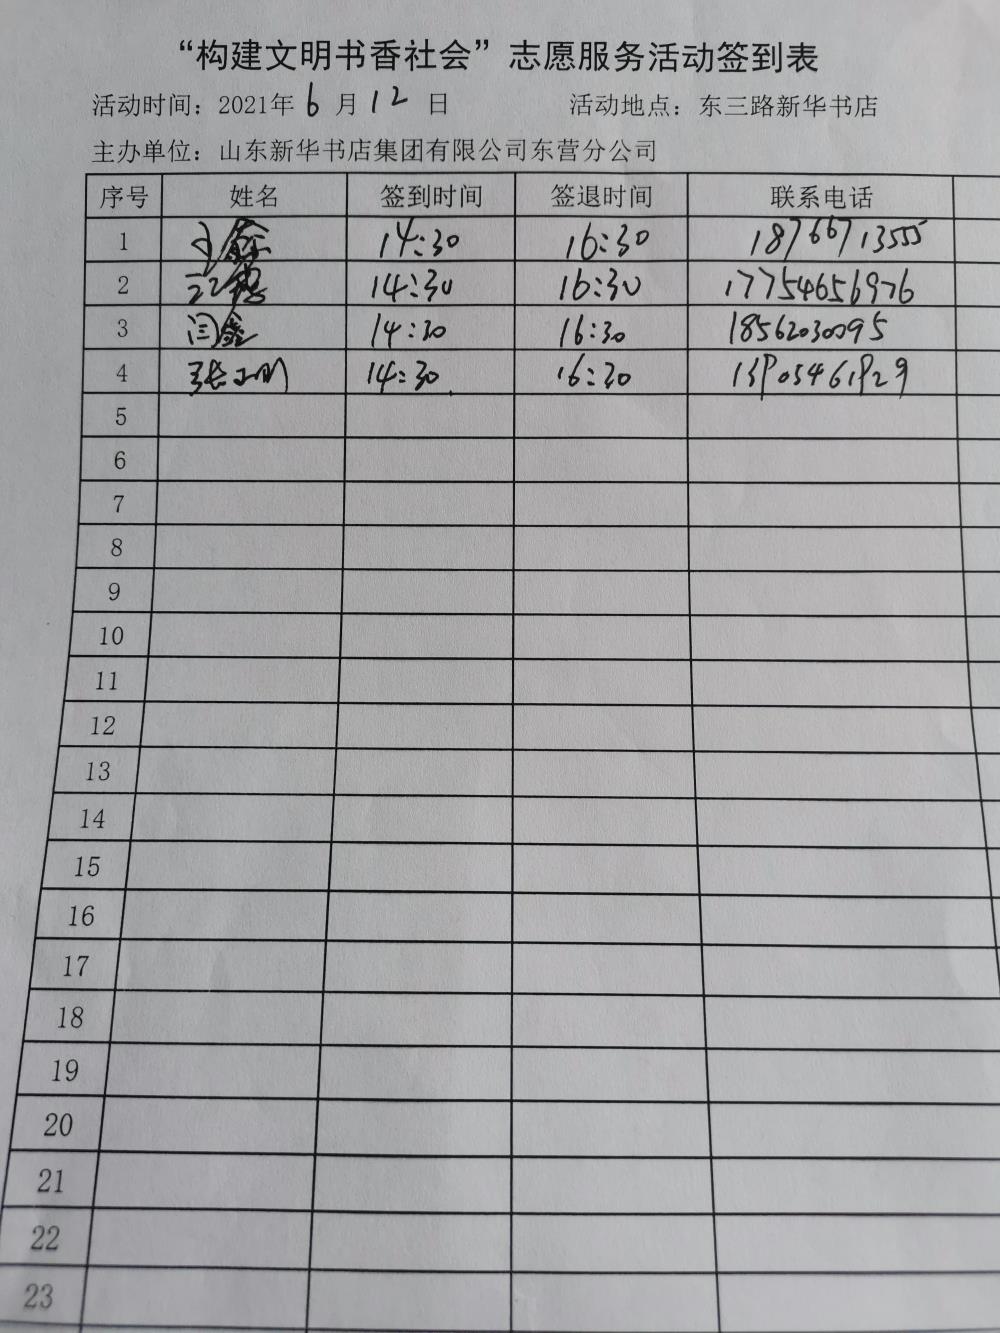 “构建文明书香社会”志愿服务活动签到表
活动时间：2021年 6 月 12 日 活动地点：东三路新华书店
主办单位：山东新华书店集团有限公司东营分公司
序号 姓名 签到时间 签退时间 联系电话
1 14:30 16:30 18766713555
2 14:30 16:30 17754656976
3 闫鑫 14:30 16:30 18562030095
4 14:30 16:30 13905461929
5
6
7
8
9
10
11
12
13
14
15
16
17
18
19
20
21
22
23